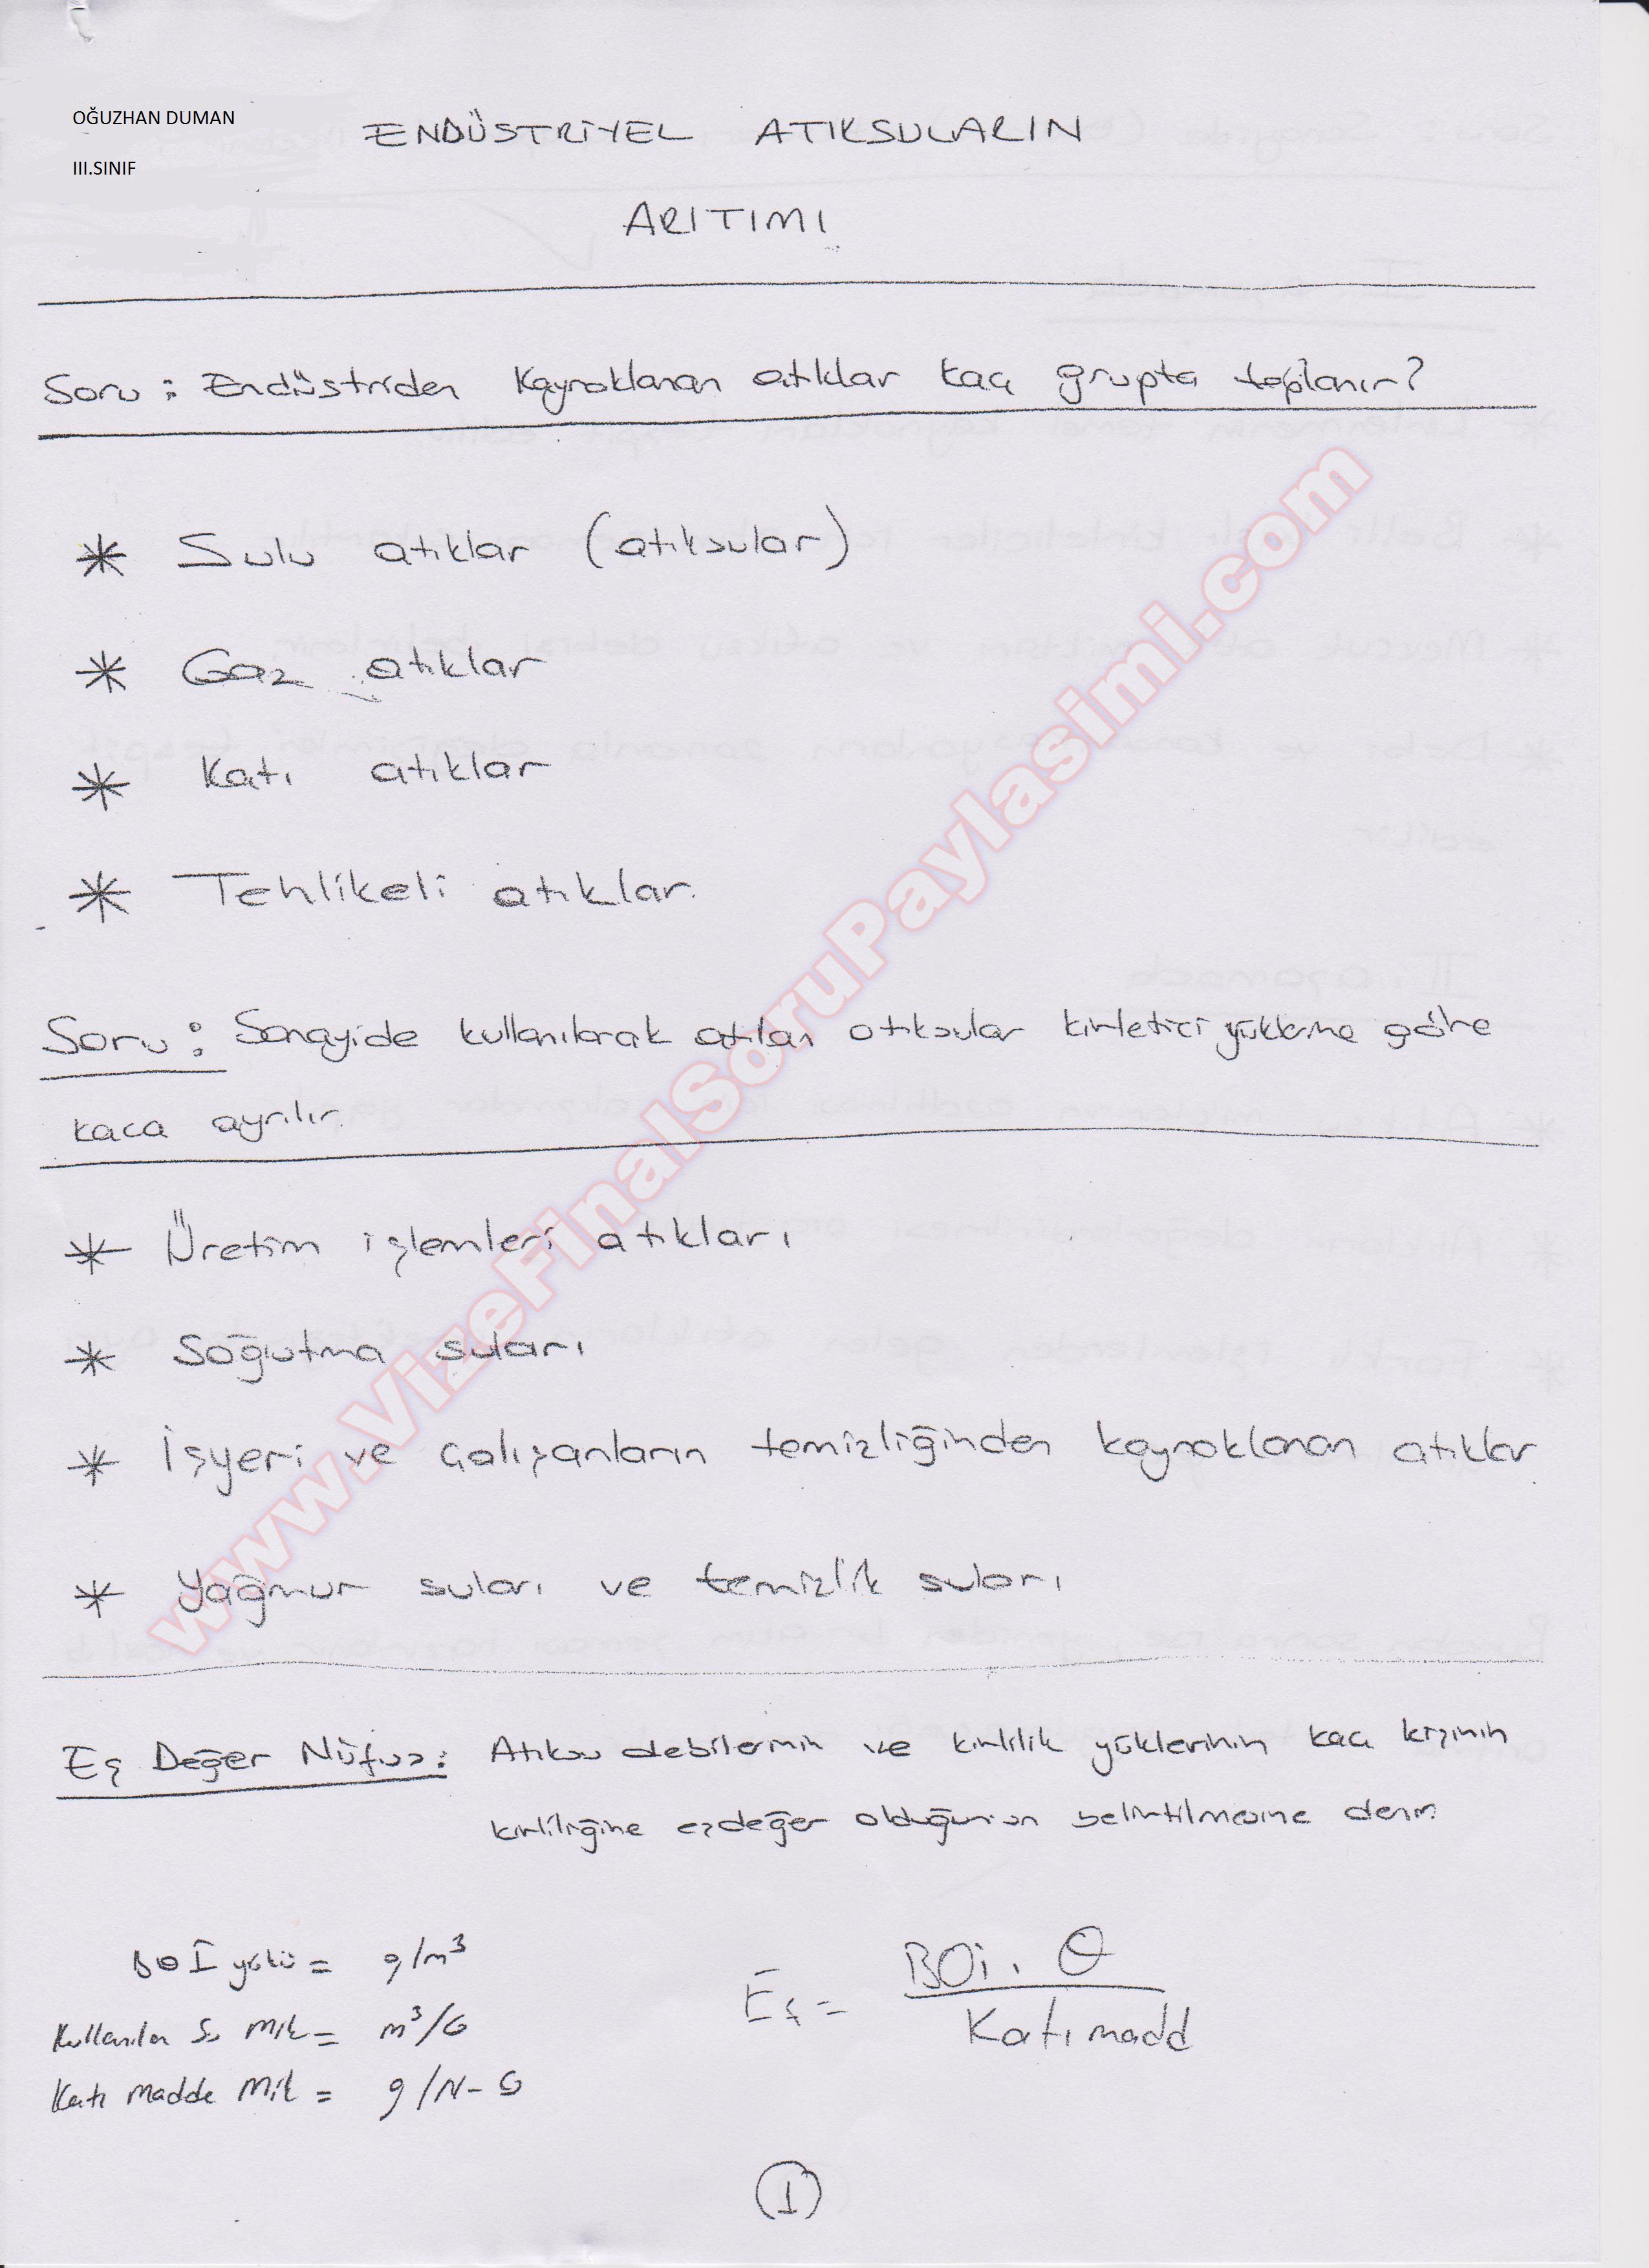 OĞUZHAN DUMAN
III.SINIF
ENDÜSTRİYEL ATIKSULARIN
ARITIMI
Soru : Endüstriden Kaynaklanan atıklar kaç grupta toplanır?
* Sulu atıklar (atıksular)
* Gaz atıklar
* Katı atıklar
* Tehlikeli atıklar.
Soru : Sanayide kullanılarak atılan atıksular kirletici yüklerine göre
kaca ayrılır.
* Üretim işlemleri atıkları
* Soğutma suları
* İşyeri ve çalışanların temizliğinden kaynaklanan atıklar
* Yağmur suları ve temizlik suları
Eş Değer Nüfus : Atıksu debilerinin ve kirlilik yüklerinin kaç kişinin
kirliliğine eşdeğer olduğunun belirtilmesine denir.
BOİ yükü = g/m³
Kullanılan Su Mik = m³/G
Katı Madde Mik = g/N-G
Eş = BOİ . Q / Katı madd
1
www.VizeFinalSoruPaylasimi.com